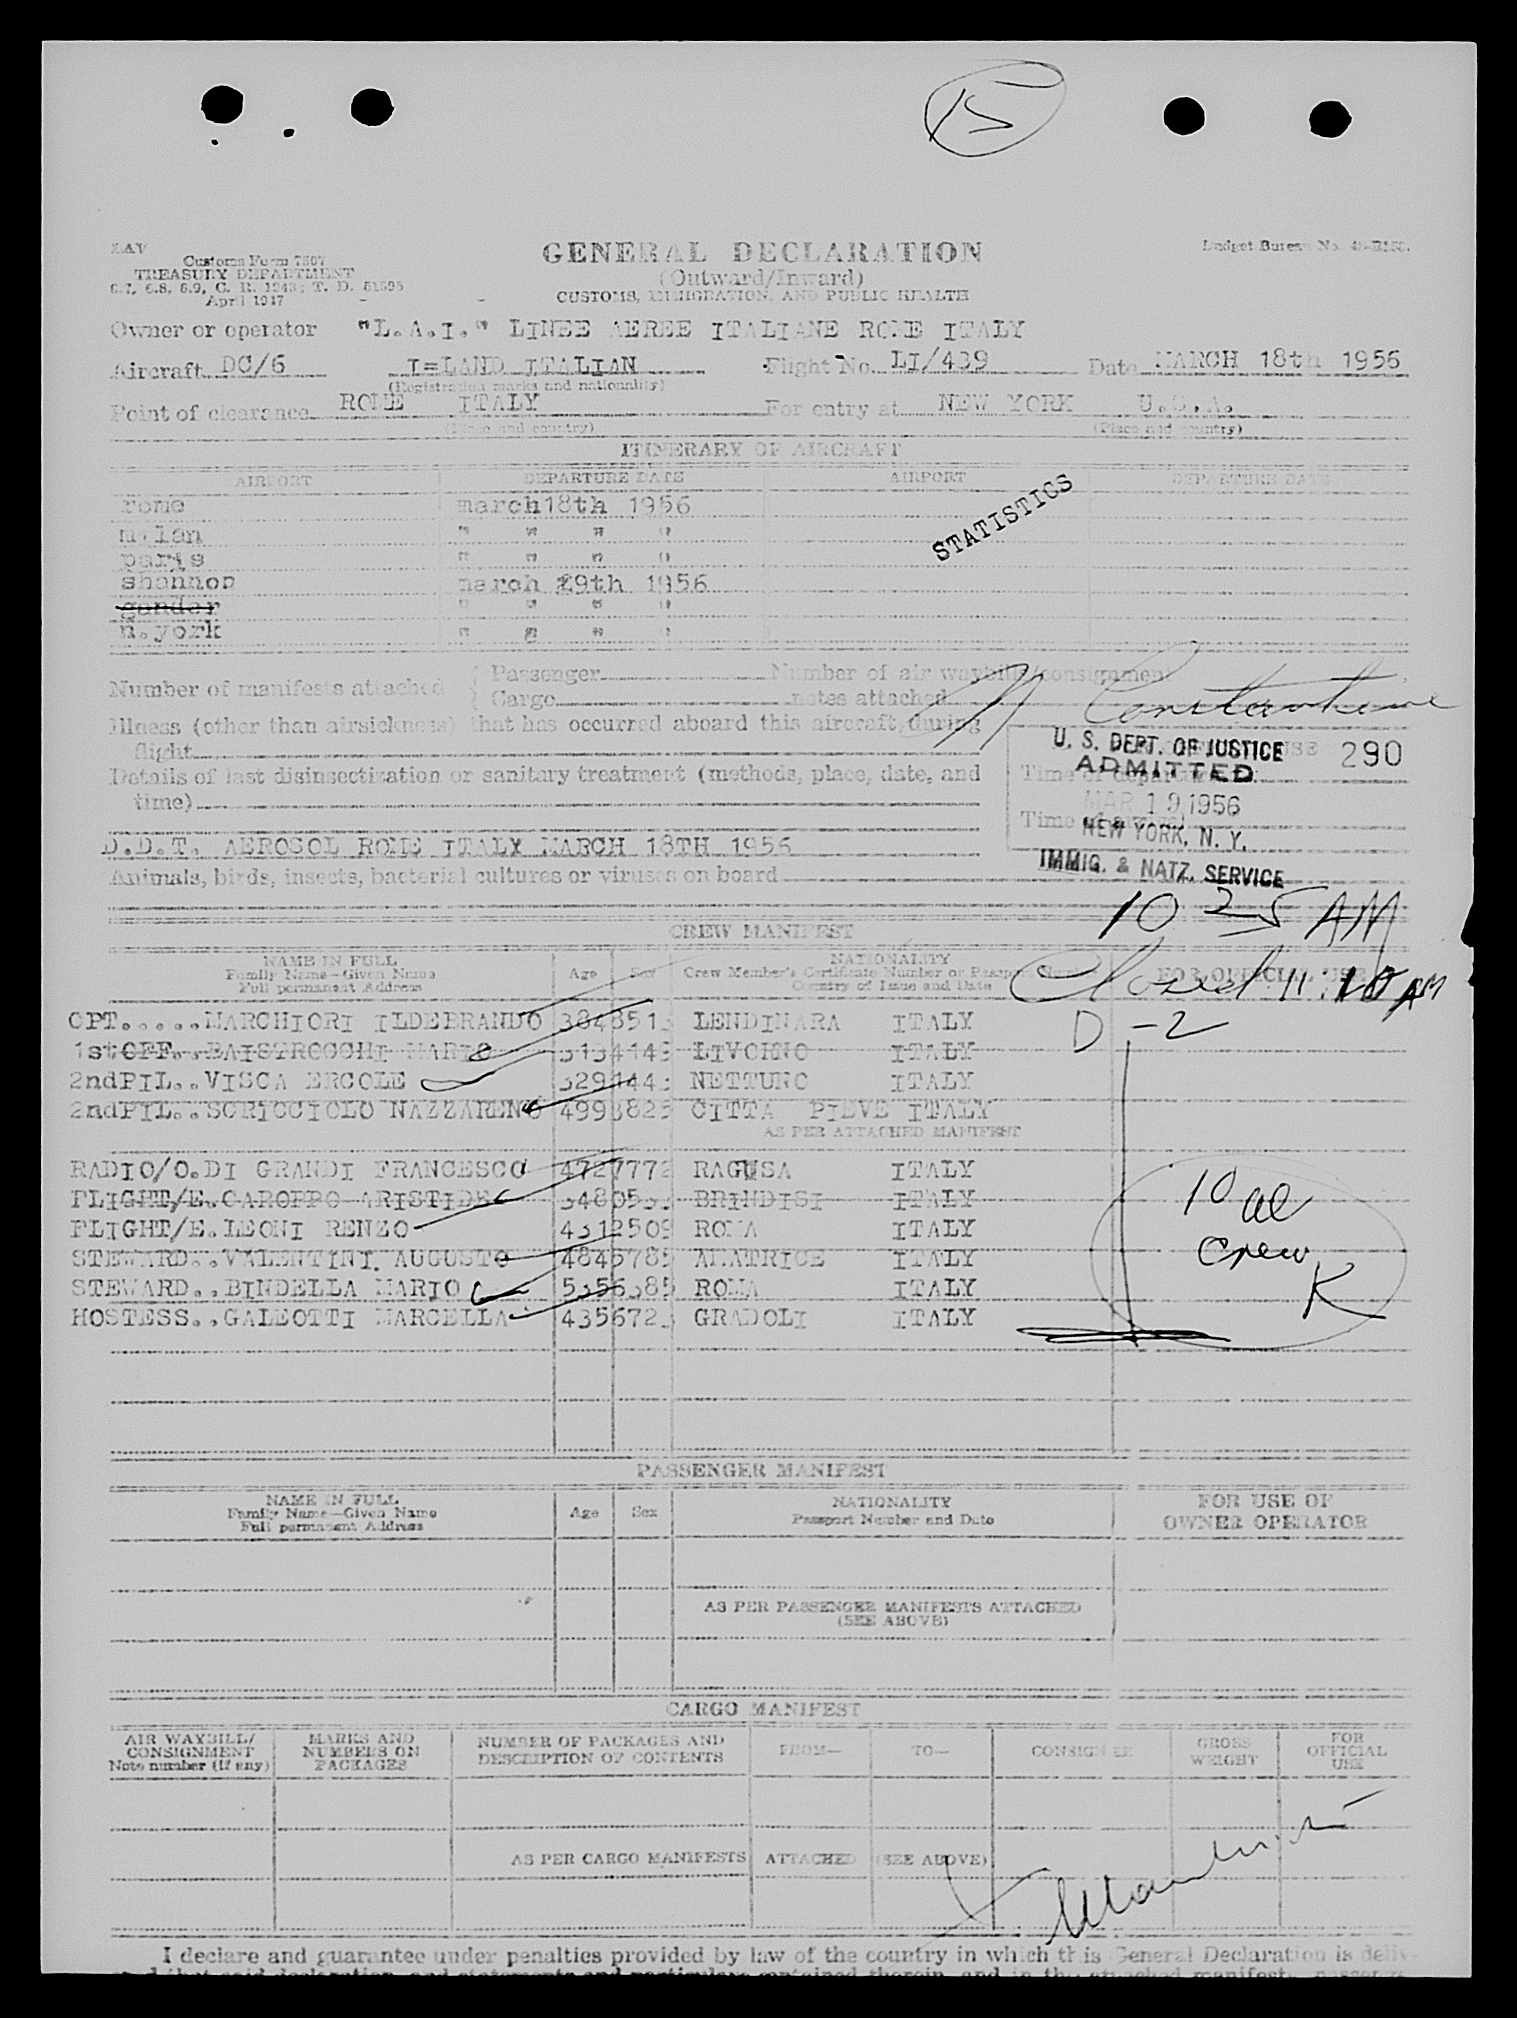 15
GENERAL DECLARATION
(Outward/Inward)
CUSTOMS, IMMIGRATION, AND PUBLIC HEALTH
Customs Form 7507
TREASURY DEPARTMENT
April 1947
Budget Bureau No.
Owner or operator "L.A.I." LINEE AEREE ITALIANE ROME ITALY
Aircraft DC/6 I=LAND ITALIAN Flight No. LI/439 Date MARCH 18th 1956
(Registration marks and nationality)
Point of clearance ROME ITALY For entry at NEW YORK U.S.A.
(Place and country) (Place and country)
ITINERARY OF AIRCRAFT
AIRPORT DEPARTURE DATE AIRPORT DEPARTURE DATE
rome march18th 1956
milan " " " "
paris " " " "
shannon march 19th 1956
gander " " " "
n.york " " " "
STATISTICS
Number of manifests attached { Passenger Number of air waybills/consignment
Cargo notes attached
Illness (other than airsickness) that has occurred aboard this aircraft during
flight
Details of last disinsectization or sanitary treatment (methods, place, date, and
time)
D.D.T. AEROSOL ROME ITALY MARCH 18TH 1956
Animals, birds, insects, bacterial cultures or viruses on board
290
U. S. DEPT. OF JUSTICE
ADMITTED
MAR 19 1956
NEW YORK, N. Y.
IMMIG. & NATZ. SERVICE
Time of departure
Time of arrival
10 25 AM
Closed 11:10 AM
CREW MANIFEST
NAME IN FULL
Family Name—Given Name
Full permanent Address
Age Sex
NATIONALITY
Crew Member's Certificate Number or Passport Number
Country of Issue and Date
FOR OFFICIAL USE
CPT.....MARCHIORI ILDEBRANDO LENDINARA ITALY D-2
1st OFF..BAISTROCCHI MARIO LIVORNO ITALY
2ndPIL..VISCA ERCOLE NETTUNO ITALY
2ndPIL..SCRICCIOLO NAZZARENO CITTA PIEVE ITALY
AS PER ATTACHED MANIFEST
RADIO/O.DI GRANDI FRANCESCO 4727772 RAGUSA ITALY
FLIGHT/E.CAROPPO ARISTIDE BRINDISI ITALY
FLIGHT/E.LEONI RENZO 4312509 ROMA ITALY
STEWARD..VALENTINI AUGUSTO 4845785 AMATRICE ITALY
STEWARD..BINDELLA MARIO 5356385 ROMA ITALY
HOSTESS..GALEOTTI MARCELLA GRADOLI ITALY
10 al
Crew
K
PASSENGER MANIFEST
NAME IN FULL
Family Name—Given Name
Full permanent Address
Age Sex
NATIONALITY
Passport Number and Date
FOR USE OF
OWNER OPERATOR
AS PER PASSENGER MANIFESTS ATTACHED
(SEE ABOVE)
CARGO MANIFEST
AIR WAYBILL/
CONSIGNMENT
Note number (if any)
MARKS AND
NUMBERS ON
PACKAGES
NUMBER OF PACKAGES AND
DESCRIPTION OF CONTENTS
FROM—
TO—
CONSIGNEE
GROSS
WEIGHT
FOR
OFFICIAL
USE
AS PER CARGO MANIFESTS ATTACHED (SEE ABOVE)
I declare and guarantee under penalties provided by law of the country in which this General Declaration is deliv-